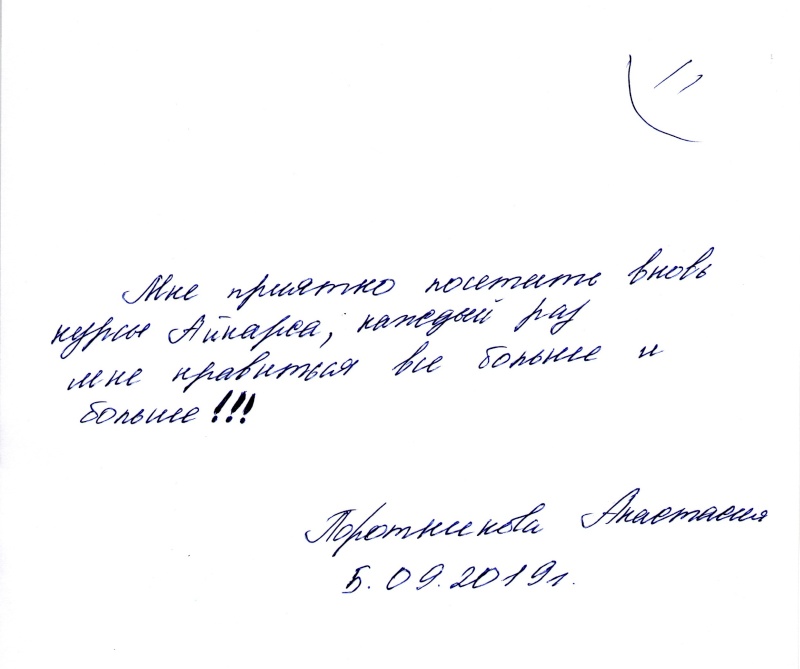 Мне приятно посетить вновь
курсы Айнарса, каждый раз
мне нравиться все больше и
больше!!!
Поротникова Анастасия
5.09.2019г.